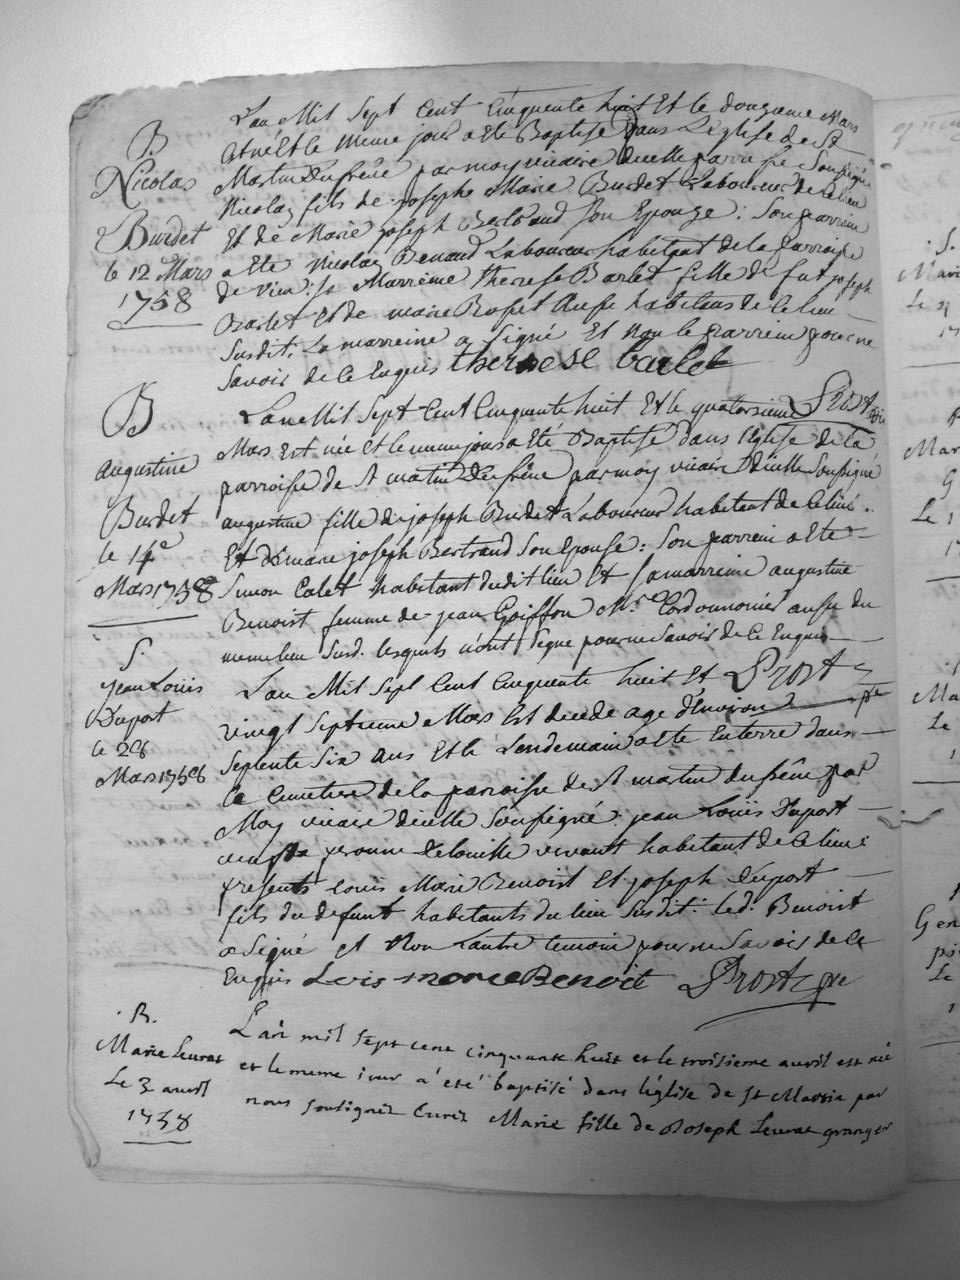 B
Nicolas
Burdet
le 12 Mars
1758
L'an Mil Sept Cent Cinquente huit Et le douzieme Mars
Est né Et le meme jour a Ete Baptisé Dans L'eglise de St
Martin Du frêne par moy vicaire dicelle parroisse Soussigné
Nicolas fils de Josephe Marie Burdet Laboureur de ce lieu
Et de Marie joseph Bertrand Son Epouse : Son parrein
a Ete Nicolas Benaud Laboureur habitant de la parroisse
de vieu : Sa Marreine Therese Barlet fille de fut joseph
Barlet Et de marie Rosset Aussi habitans de ce lieu
Susdit. La marreine a Signé Et Non le parrein pour ne
Savoir de ce Enquis therese barlet
Prost vre
B
augustine
Burdet
le 14e
Mars 1758
L'an Mil Sept Cent Cinquente huit Et le quatorsieme
Mars Est née Et le meme jour a Eté Baptisé dans l'Eglise de la
parroisse de St martin Du frêne par moy vicaire Dicelle Soussigné
augustine fille de joseph Burdet Laboureur habitent de ce lieu.
Et de marie joseph Bertrand Son Epouse : Son parrein a Ete
Simon Calet habitant dudit lieu Et Sa marreine augustine
Benoist femme de jean Goiffon Mre Cordonnonier aussi du
meme lieu Susd. lesquels n'ont Signé pour ne Savoir de ce Enquis
Prost vre
S.
jean Loüis
Duport
le 28
Mars 1758
L'an Mil Sept Cent Cinquente huit Et
vingt Septieme Mars Est decede age d'Environ
Septente Six ans Et le Lendemain a Ete Enterre dans
le Cemetiere de la parroisse de St martin du frêne par
Moy vicaire dicelle Soussigné : jean Loüis Duport
vivant habitant de ce lieu :
presents Louis Marie Benoist Et joseph Duport
fils du defunt habitants du lieu Susdit : led. Benoist
a Signé et Non L'autre temoin pour ne Savoir de ce
Enquis Lois marie Benoit Prost vre
B.
Marie Leurat
Le 3 avril
1758
L'an mil sept cent cinquante huit et le troisieme avril est née
et le meme jour a été baptisé dans l'église de St Martin par
nous soussignez Curez Marie fille de Joseph Leurat granger